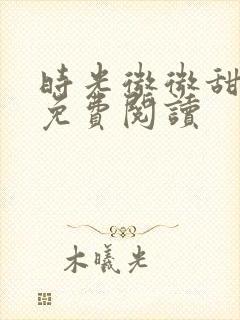 時光微微甜
免費閱讀
木曦光